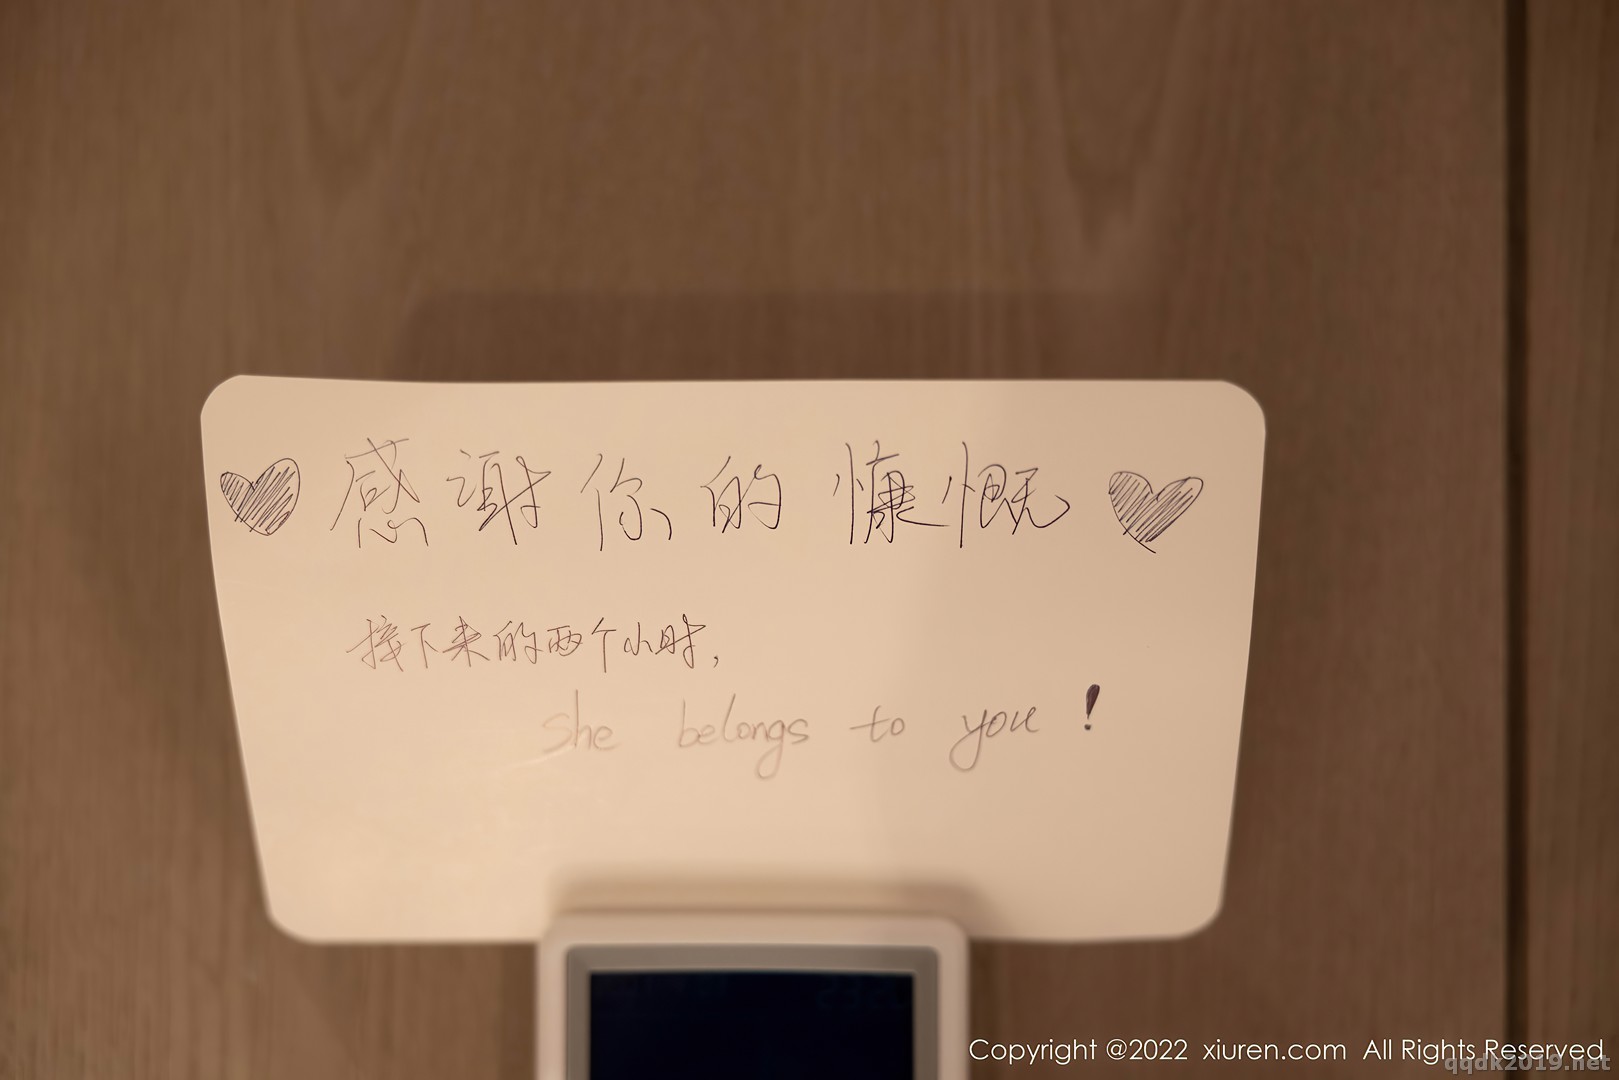 感谢你的慷慨
接下来的两个小时,
she belongs to you!
Copyright @2022 xiuren.com All Rights Reserved
qqdk2019.net